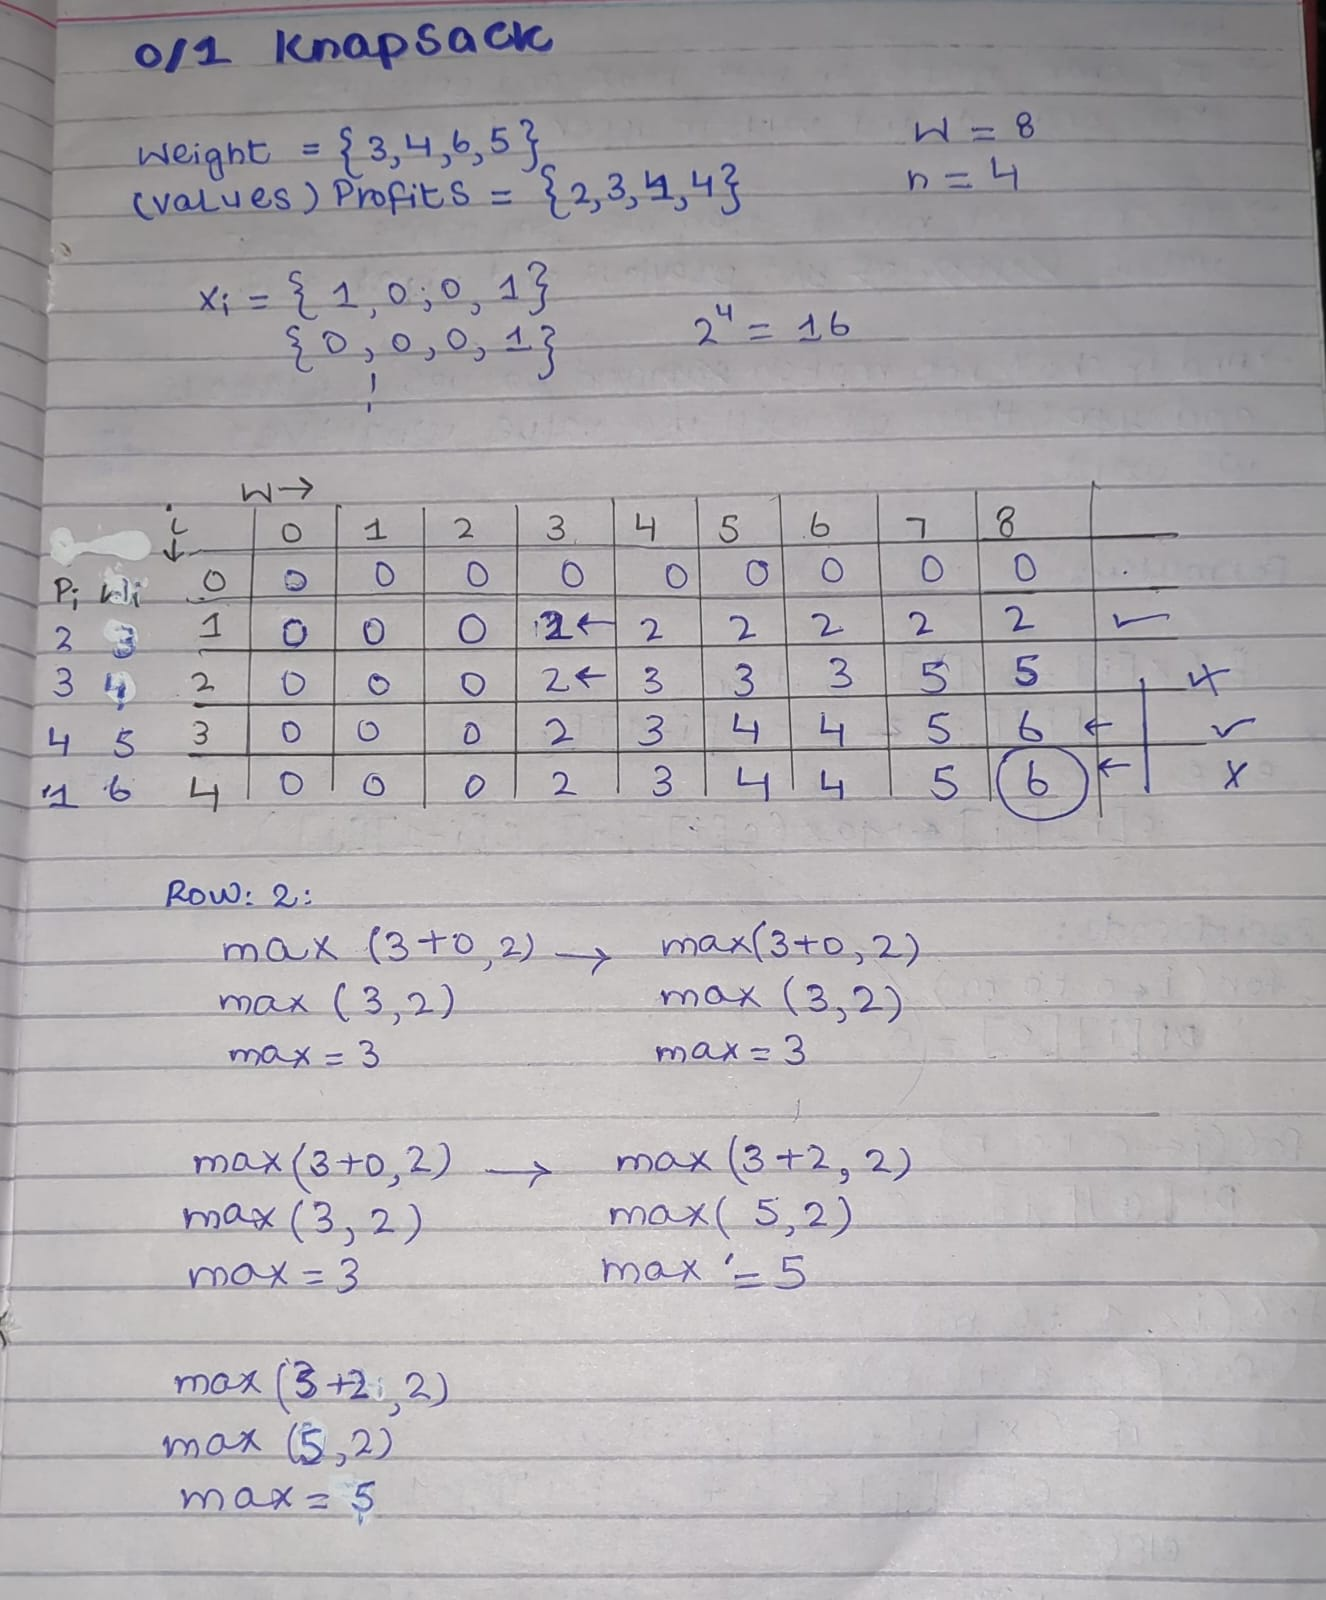 0/1 Knapsack
Weight = {3,4,6,5} W = 8
(values) Profits = {2,3,1,4} n = 4
xi = {1,0,0,1}
{0,0,0,1} 2^4 = 16
W→
i↓ 0 1 2 3 4 5 6 7 8
Pi Wi 0 0 0 0 0 0 0 0 0 0
2 3 1 0 0 0 2← 2 2 2 2 2 ✓
3 4 2 0 0 0 2← 3 3 3 5 5 x
4 5 3 0 0 0 2 3 4 4 5 6 ← ✓
1 6 4 0 0 0 2 3 4 4 5 6 ← x
Row: 2:
max (3+0,2) → max(3+0,2)
max (3,2) max (3,2)
max = 3 max = 3
max(3+0,2) → max (3+2,2)
max (3,2) max( 5,2)
max = 3 max = 5
max (3+2,2)
max (5,2)
max = 5